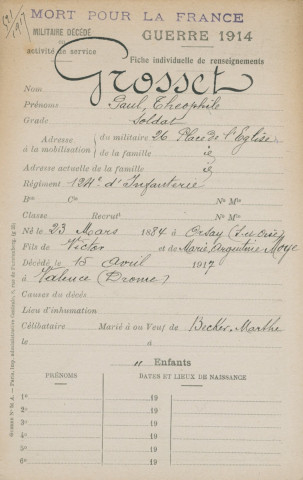 MORT POUR LA FRANCE
MILITAIRE DÉCÉDÉ GUERRE 1914
activité de service Fiche individuelle de renseignements
Nom Grosset
Prénoms Paul, Théophile
Grade Soldat
Adresse à la mobilisation { du militaire 26 Place de l'Eglise
{ de la famille id
Adresse actuelle de la famille id
Régiment 134e d'Infanterie
Bon Cie No Mle
Classe Recrutt No Mle
Né le 23 Mars 1884 à Orsay
Fils de Victor et de Marie, Argentine
Décédé le 15 Avril 1917
à Valence (Drome)
Causes du décès
Lieu d'inhumation
Célibataire Marié à ou Veuf de Becker, Marthe
le à
" Enfants
PRÉNOMS DATES ET LIEUX DE NAISSANCE
1o 19
2o 19
3o 19
4o 19
5o 19
6o 19